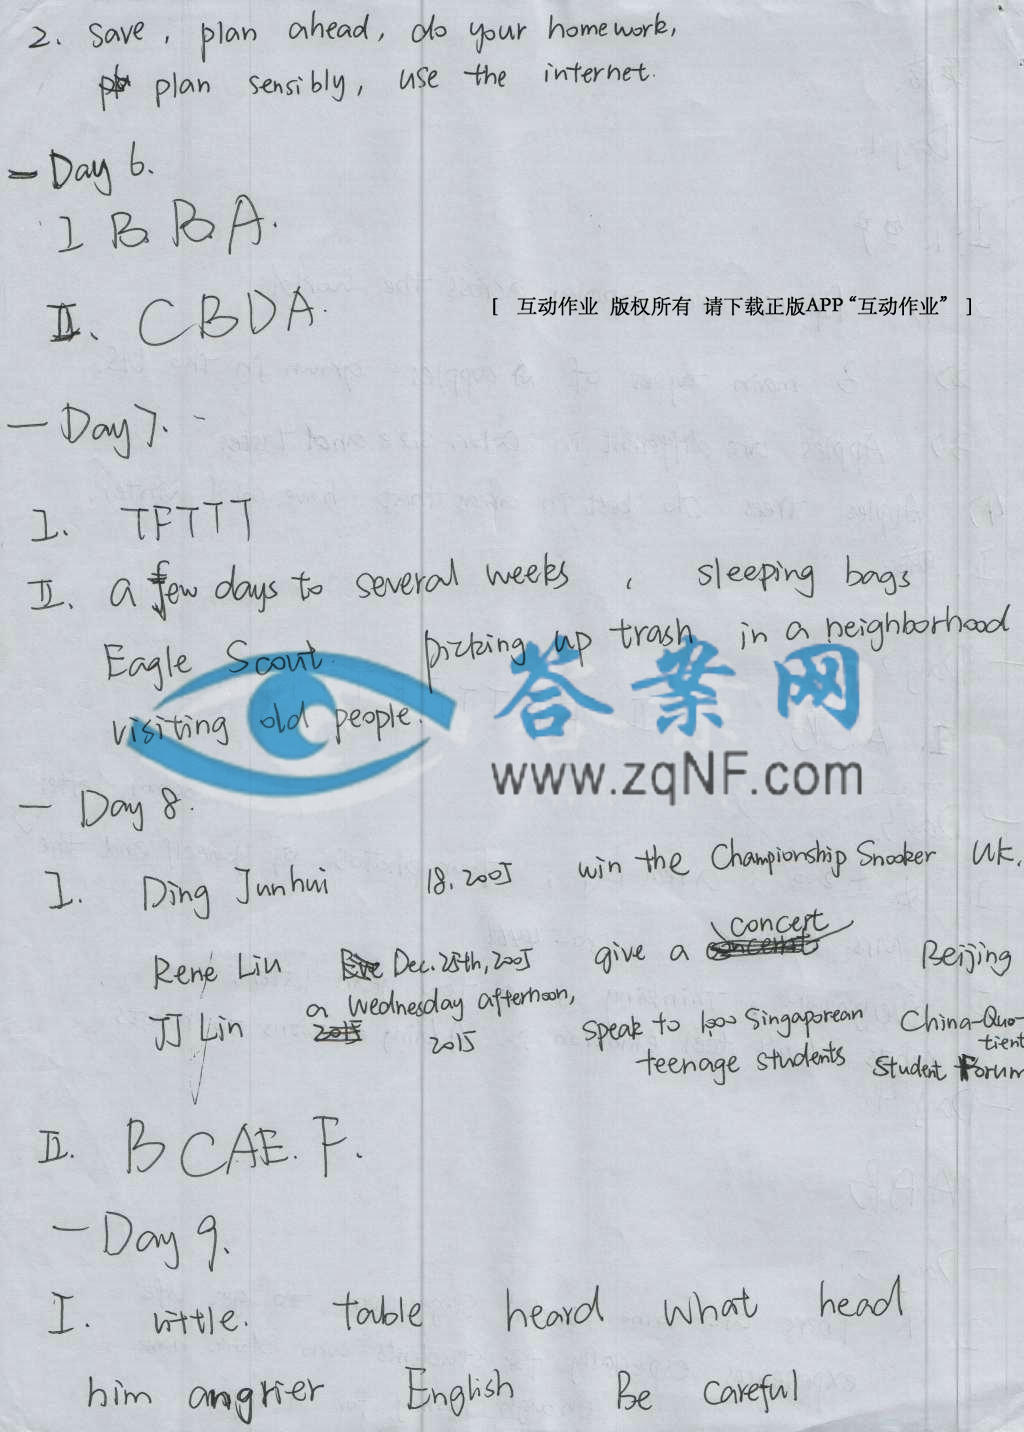 2. save, plan ahead, do your homework,
plan sensibly, use the internet.
— Day 6.
I B B A.
[ 互动作业 版权所有 请下载正版APP “互动作业” ]
II. C B D A.
— Day 7.
I. T F T T T
II. a few days to several weeks , sleeping bags
Eagle Scout picking up trash in a neighborhood
visiting old people.
答案网
www.zqNF.com
— Day 8.
I. Ding Junhui 18, 2005 win the Championship Snooker UK.
René Liu Dec. 25th, 2005 give a concert Beijing
JJ Lin a Wednesday afternoon, 2015 speak to 1,000 Singaporean teenage students China-Quotient Student Forum
II. B C A E. F.
— Day 9.
I. little. table heard what head
him angrier English Be careful